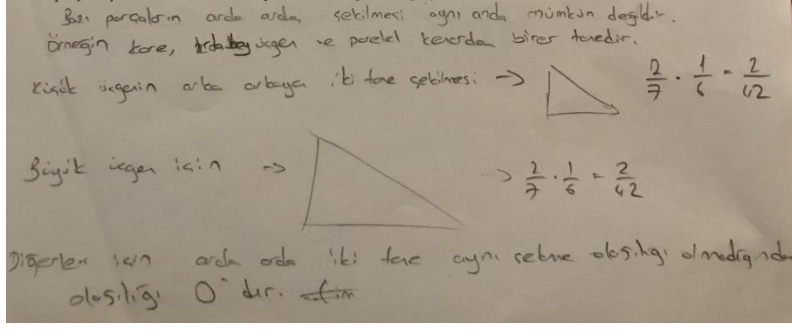 Bazı parçaların arda arda çekilmesi aynı anda mümkün değildir.
Örneğin kare, üçgen ve paralel kenarda birer tanedir.
Küçük üçgenin arka arkaya iki tane çekilmesi → 2/7 · 1/6 = 2/42
Büyük üçgen için → → 2/7 · 1/6 = 2/42
Diğerleri için arda arda iki tane aynı çekme olasılığı olmadığından
olasılığı 0'dır.